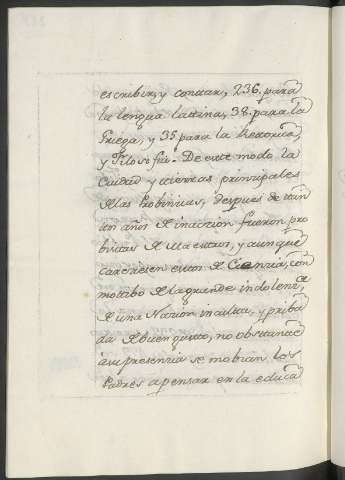 escribir, y contar, 236. para
la lengua lattina, 38. para la
Griega, y 35 para la Retorica
y Filosofia. De este modo la
Ciudad y tierras principales
de las Probincias, despues de
años de inaccion fueron pro
bistas de Maestros, y aunque
careciesen estos de Ciencia, con
motibo de la grande indolencia
de una Nacion inculta, y priba
da de buen gusto, no obstante
a su presencia se mobian, los
Padres a pensar en la educa